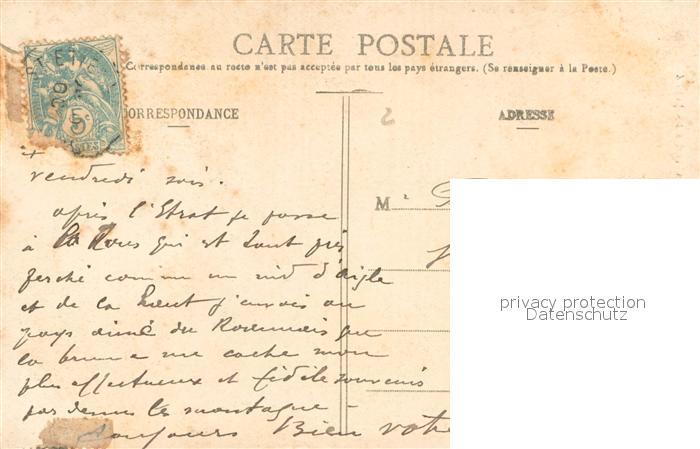 CARTE POSTALE
Correspondance au recto n'est pas acceptée par tous les pays étrangers. (Se renseigner à la Poste.)
CORRESPONDANCE
ADRESSE
2
5c
M
vendredi soir.
après l'Etrat je passe
à la Tour qui est tout près
perché comme un nid d'aigle
et de la haut j'envoie au
pays aimé du Roannais que
la brume me cache mon
plus affectueux et fidèle souvenir
par dessus les montagne -
toujours Bien votre
privacy protection
Datenschutz